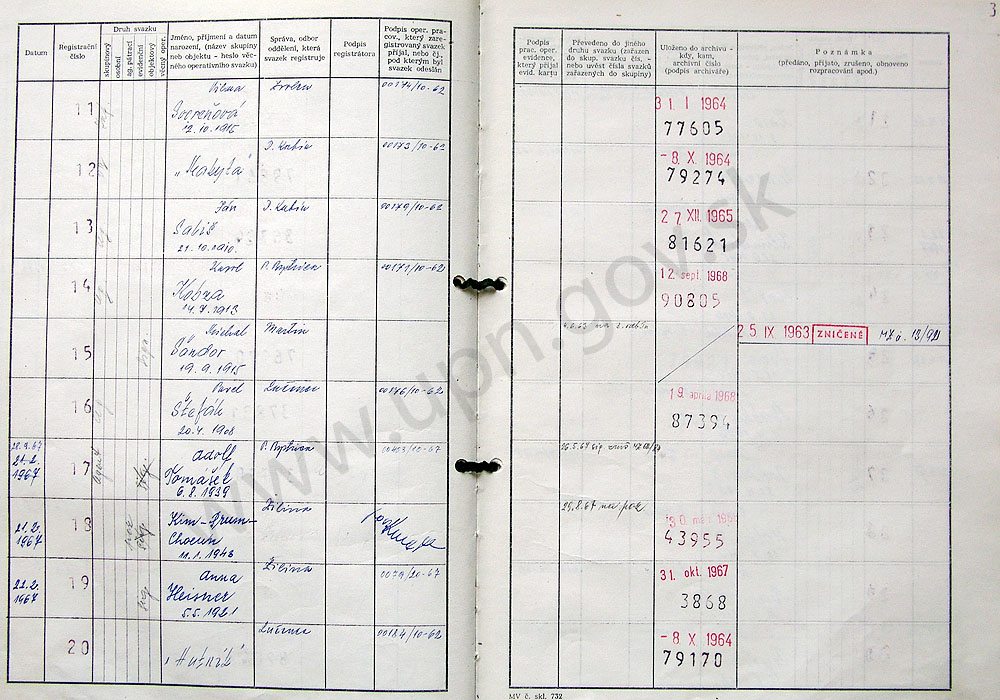 3
Datum
Registrační
číslo
Druh svazku
skupinový
osobní
ag. pátrací
evidenční
objektový
věcný oper.
Jméno, příjmení a datum
narození, (název skupiny
neb objektu - heslo věc-
ného operativního svazku)
Správa, odbor
oddělení, která
svazek registruje
Podpis
registrátora
Podpis oper. pra-
cov., který zare-
gistrovaný svazek
přijal, nebo čj.,
pod kterým byl
svazek odeslán
Podpis
prac. oper.
evidence,
který přijal
evid. kartu
Převedeno do jiného
druhu svazku (zařazen
do skup. svazku čís. -
nebo uvést čísla svazků
zařazených do skupiny)
Uloženo do archivu -
kdy, kam,
archivní číslo
(podpis archiváře)
Poznámka
(předáno, přijato, zrušeno, obnoveno
rozpracování apod.)
11
Vilma
Dvoreňová
12.10.1915
Zvolen
00174/10-62
31. I 1964
77605
12
D. Kubín
00173/10-62
- 8. X. 1964
79274
13
Ján
Sabiš
21.10.1910.
D. Kubín
00179/10-62
27 XII. 1965
81621
14
Karol
Kobza
14.7.1913
B. Bystrica
00171/10-62
12. sept. 1968
90805
15
Michal
Šándor
19.9.1915
Martin
25 IX 1963 ZNIČENÉ
16
Pavel
Štefák
20.4.1908
Lučenec
00176/10-62
19. apríla 1968
87394
28.9.67
21.2.
1967
17
agent
Adolf
Tomášek
6.8.1939
B. Bystrica
18
21.2.
1967
Kim-Brum-
Choeun
11.1.1946
Žilina
29.8.67 na
43955
22.2.
1967
19
Anna
Heisner
5.5.1921
Žilina
0079/20-67
31. okt. 1967
3868
20
Lučenec
00184/10-62
- 8. X 1964
79170
www.upn.gov.sk
MV č. skl. 752